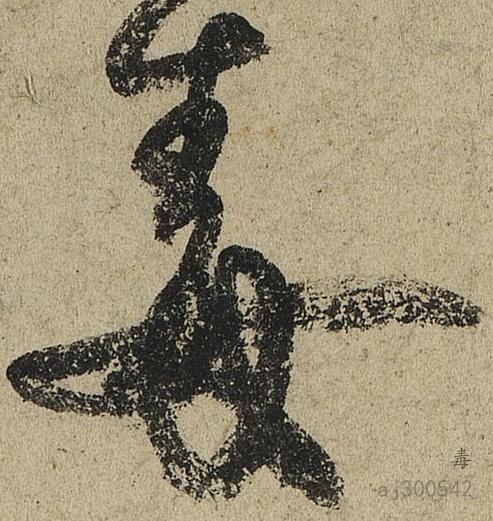 毒
毒
aj300542